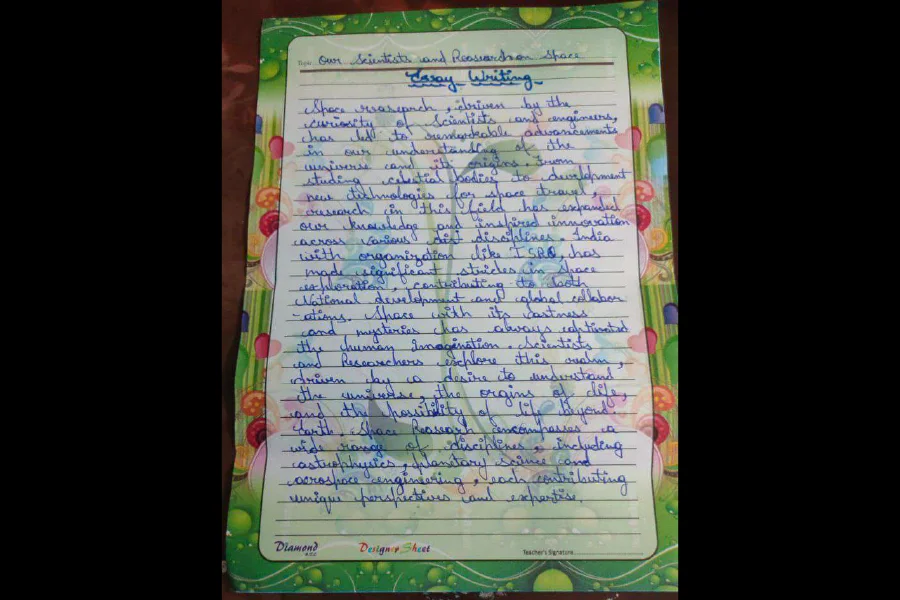 Topic Our Scientists and Reasearch on Space
Essay Writing
Space rrasearch, driven by the
curiosity of scientists and engineers,
has led to remarkable advancements
in our understanding of the
universe and its origins. From
studing celestial bodies to development
new technologies for space travel,
research in this field has expanded
our knowledge and inspired innovation
across various dist disciplines. India
with organization like ISRO, has
made significant strides in space
exploration, contributing to both
National development and global collabor
-ations. Space with its vastness
and mysteries has always captivated
the human Imagination. Scientists
and Researchers explore this realm,
driven by a desire to understand
the universe, the orgins of life,
and the possibility of life beyond.
Earth. Space Reasearh encompasses a
wide range of disciplines, including
astrophyics, planetary science and
aerospace engineering, each contributing
unique perspectives and expertise.
Diamond
Designer Sheet
Teacher's Signature